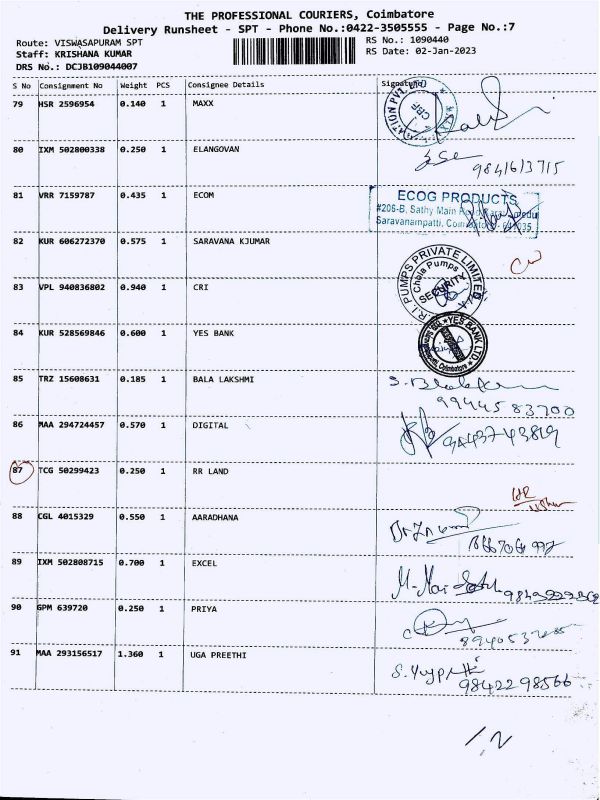 THE PROFESSIONAL COURIERS, Coimbatore
Delivery Runsheet - SPT - Phone No.:0422-3505555 - Page No.:7
Route: VISWASAPURAM SPT
RS No.: 1090440
Staff: KRISHANA KUMAR
RS Date: 02-Jan-2023
DRS No.: DCJB109044007
S No Consignment No Weight PCS Consignee Details Signature
79 HSR 2596954 0.140 1 MAXX
CBE
80 IXM 502800338 0.250 1 ELANGOVAN
9841613715
81 VRR 7159787 0.435 1 ECOM
ECOG PRODUCTS
#206-B, Sathy Main
Saravanampatti, Coimbatore
82 KUR 606272370 0.575 1 SARAVANA KJUMAR
83 VPL 940836802 0.940 1 CRI
PUMPS PRIVATE LIMITED
Chola Pumps
SECURITY
84 KUR 528569846 0.600 1 YES BANK
YES BANK LTD
Coimbatore
85 TRZ 15608631 0.185 1 BALA LAKSHMI
9944583700
86 MAA 294724457 0.570 1 DIGITAL
87 TCG 50299423 0.250 1 RR LAND
88 CGL 4015329 0.550 1 AARADHANA
89 IXM 502808715 0.700 1 EXCEL
90 GPM 639720 0.250 1 PRIYA
91 MAA 293156517 1.360 1 UGA PREETHI
9842298566